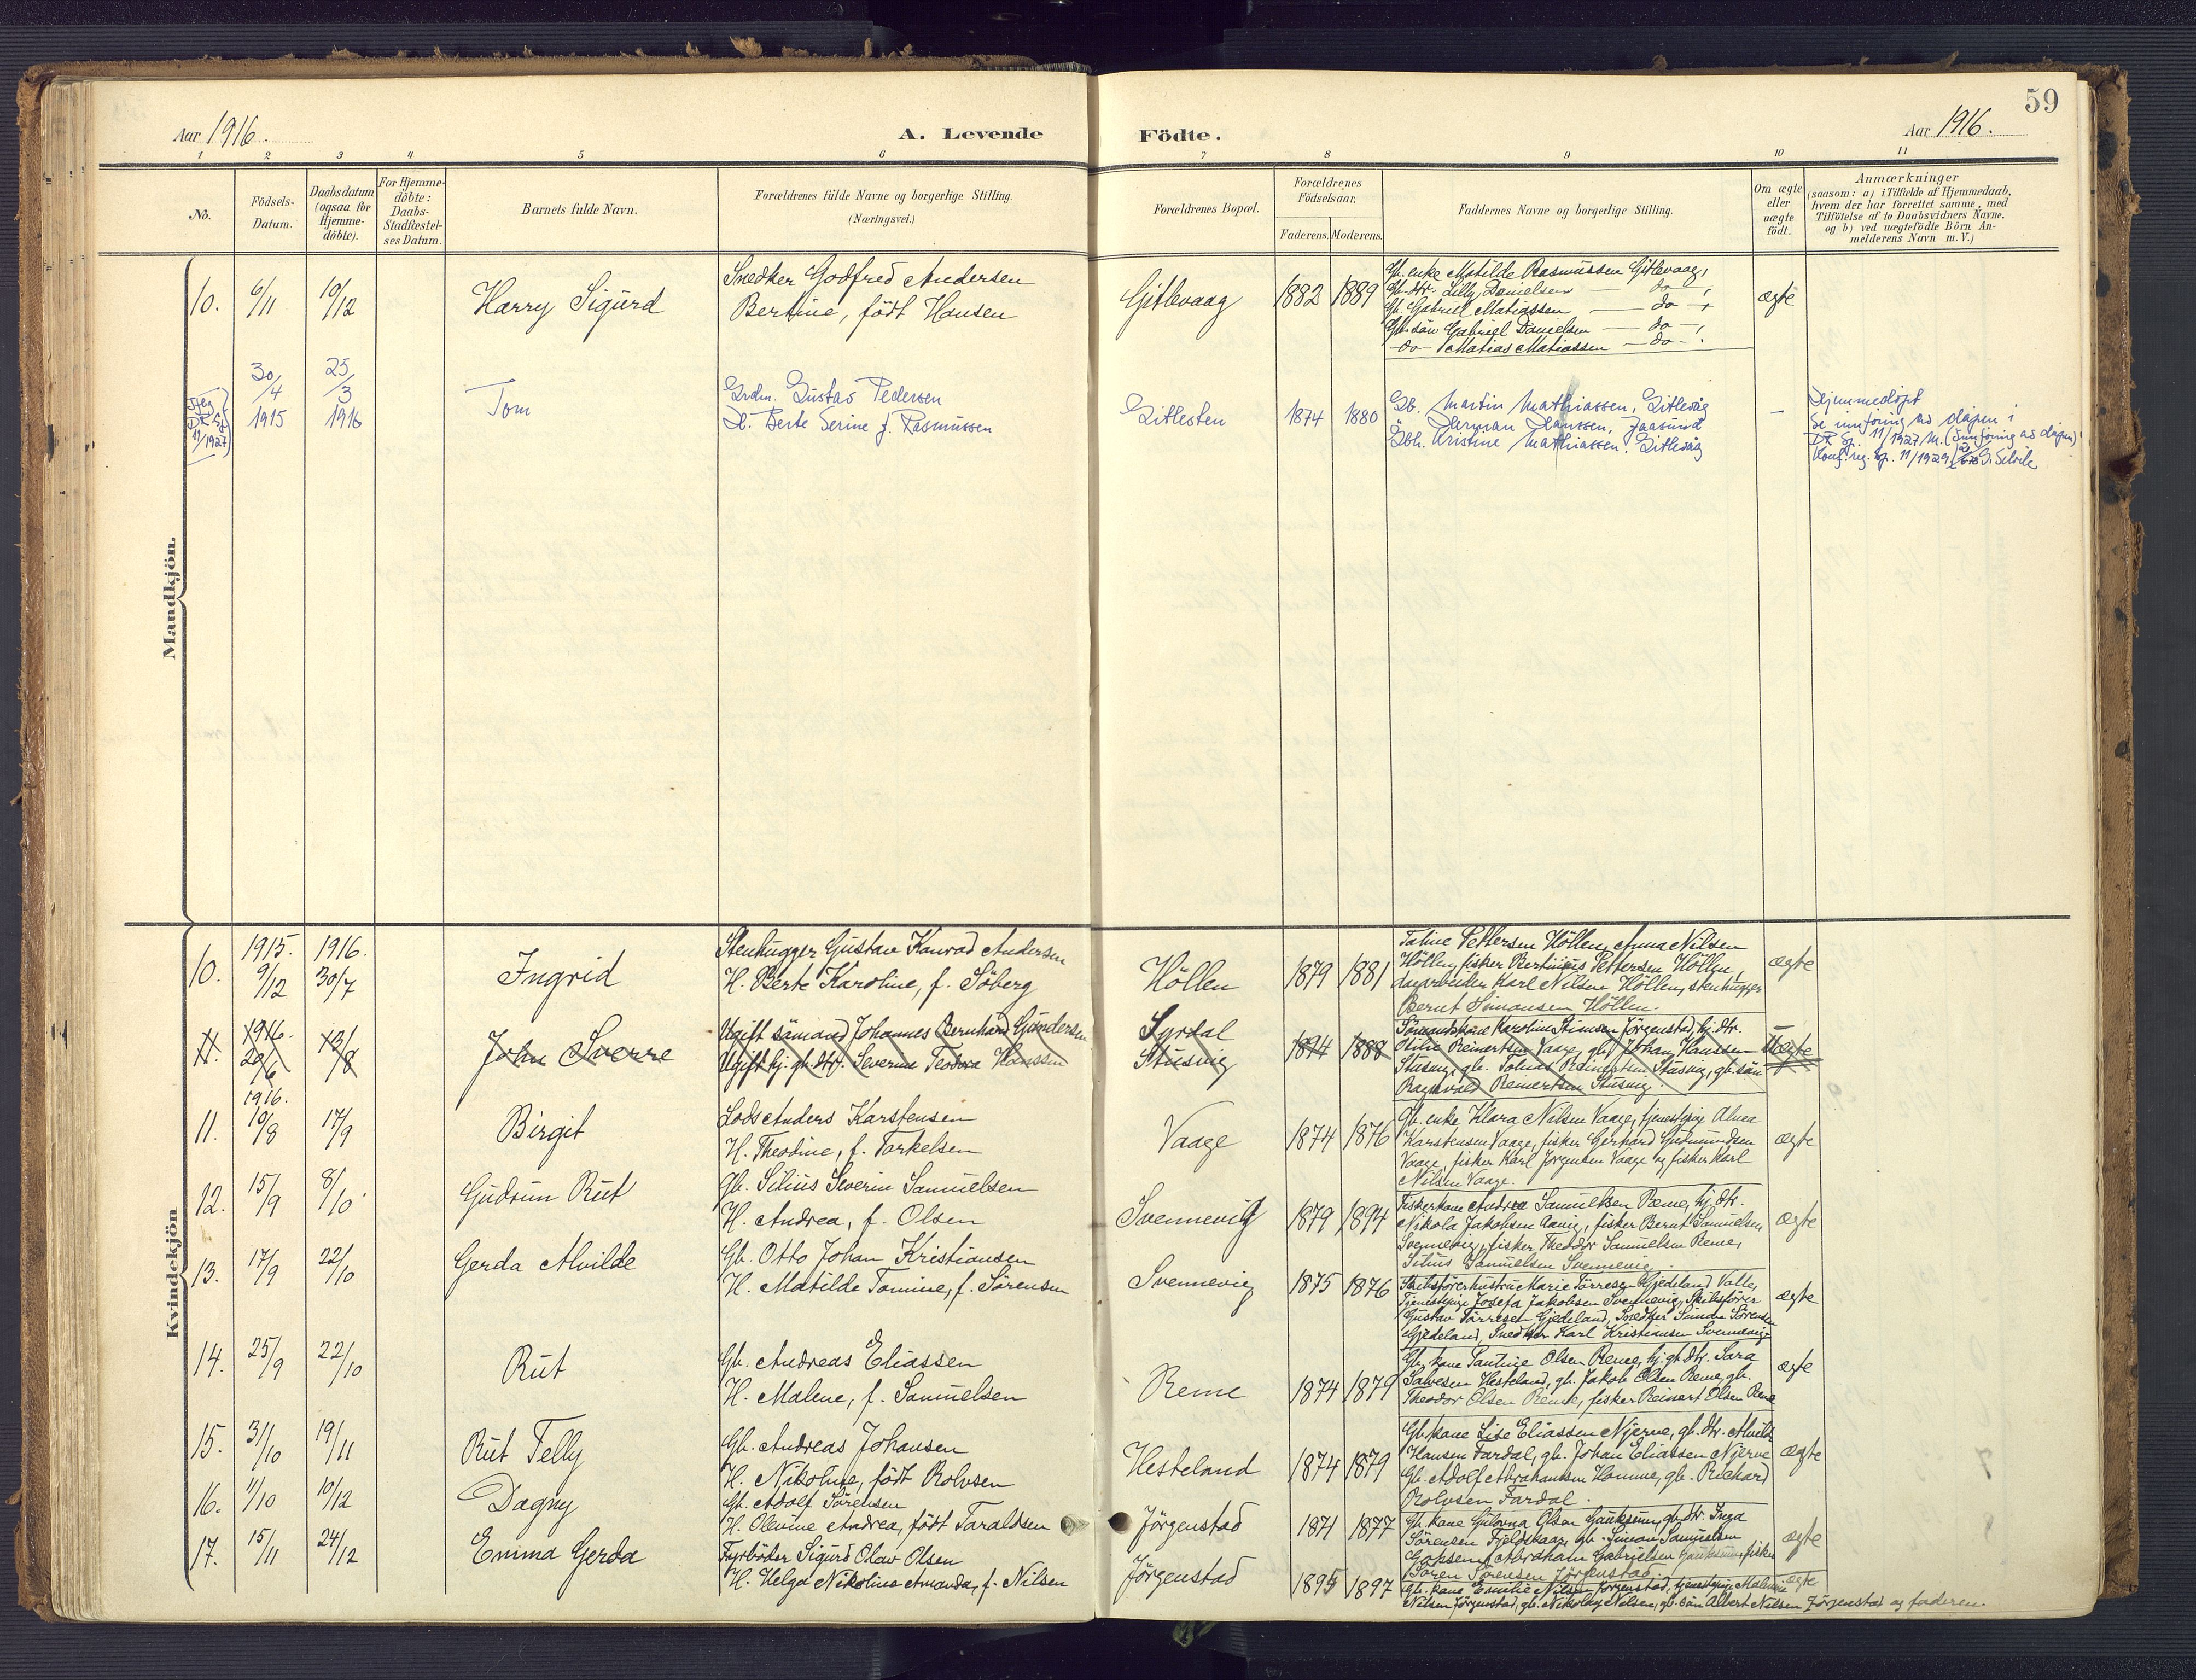 59
Aar 1916.
A. Levende Födte.
Aar 1916.
1 2 3 4 5 6 7 8 9 10 11
No.
Födsels-Datum.
Daabsdatum (ogsaa for Hjemme-döbte).
For Hjemme-döbte: Daabs-Stadfæstel-ses Datum.
Barnets fulde Navn.
Forældrenes fulde Navne og borgerlige Stilling.
(Næringsvei.)
Forældrenes Bopæl.
Forældrenes Födselsaar.
Faderens. Moderens.
Faddernes Navne og borgerlige Stilling.
Om ægte eller uægte födt.
Anmærkninger
(saasom: a) i Tilfælde af Hjemmedaab,
hvem der har forrettet samme, med
Tilföielse af to Daabsvidners Navne.
og b) ved uægtefödte Börn An-
melderens Navn m. V.)
Mandkjön.
10. 6/11 10/12 Harry Sigurd
Snedker Godfred Andersen
Bertine, födt Hansen
Gitlevaag 1882 1889
Gb. enke Matilde Rasmussen Gitlevaag,
Gb. dtr. Lilly Danielsen — do —,
Gb. Gabriel Matiassen — do —,
Gb. sön Gabriel Danielsen — do —,
— do — Matias Matiassen — do —.
ægte
11/1927
30/4 1915
25/3 1916
Tom
Grdm. Gustav Pedersen
H. Berte Serine f. Rasmussen
Gitlesten 1874 1880
Gb. Martin Mathiassen, Gitlevåg
Herman Hanssen, Jaasund
Gbh. Kristine Mathiassen. Gitlevåg
—
Hjemmedöpt
Se innföring av dåpen i
11/1927 (Innföring av dåpen)
Konf. reg. 11/1929
Kvindekjön
10. 1915. 9/12 1916. 30/7 Ingrid
Stenhugger Gustav Konrad Andersen
H. Berte Karoline, f. Söberg
Höllen 1879 1881
Taline Pettersen Höllen, Anna Nilsen
Höllen, fisker Bertinius Pettersen Höllen,
dagarbeider Karl Nilsen Höllen, stenhugger
Bernt Simonsen Höllen.
ægte
11. 1916. 20/6 13/8 John Sverre
Ugift sömand Johannes Bernhard Gundersen
Ugift hj. gb. dtr. Severine Teodora Hanssen
Syrdal
Stusvig
1894 1888
Sömandskone Karoline Stiansen Jörgenstad, hj. dtr.
Otilie Reinertsen Vaage, gb. Johan Hanssen
Stusvig, gb. Tobias Reinertsen Stusvig, gb. sön
Ragnvald Reinertsen Stusvig.
Uægte
11. 1916. 10/8 17/9 Birgit
Lods Anders Karstensen
H. Theodine, f. Torkelsen
Vaage 1874 1876
Gb. enke Klara Nilsen Vaage, tjenestepige Alma
Karstensen Vaage, fisker Gerhard Gudmundsen
Vaage, fisker Karl Jörgensen Vaage og fisker Karl
Nilsen Vaage.
ægte
12. 15/9 8/10 Gudrun Rut
Gb. Silius Severin Samuelsen
H. Andrea, f. Olsen
Svennevig 1879 1894
Fiskerkone Andrea Samuelsen Reme, hj. dtr.
Nikola Jakobsen Aavig, fisker Bernt Samuelsen,
Svennevig, fisker Theodor Samuelsen Reme,
Silius Samuelsen Svennevig.
ægte
13. 17/9 22/10 Gerda Alvilde
Gb. Otto Johan Kristiansen
H. Matilde Tomine, f. Sörensen
Svennevig 1875 1876
Skibsförerhustru Marie Törresen Gjedeland Valle,
Tjenestepige Josefa Jakobsen Svennevig, Skibsförer
Gustav Törresen Gjedeland, Snedker Simon Sörensen
Gjedeland, Snedker Karl Kristiansen Svennevig
ægte
14. 25/9 22/10 Rut
Gb. Andreas Eliassen
H. Malene, f. Samuelsen
Reme 1874 1879
Gb. kone Olsen Reme, hj. gb. dtr. Sara
Salvesen Hesteland, gb. Jakob Olsen Reme, gb.
Theodor Olsen Reme, fisker Reinert Olsen Reme
ægte
15. 31/10 19/11 Rut Telly
Gb. Andreas Johansen
H. Nikoline, födt Rolvsen
Hesteland 1874 1879
Gb. kone Lise Eliassen Njerve, gb. dtr. Alvilde
Hansen Fardal, gb. Johan Eliassen Njerve
Gb. Adolf Abrahamsen Homme, gb. Richard
Rolvsen Fardal.
ægte
16. 11/10 10/12 Dagny
Gb. Adolf Sörensen
H. Olevine Andrea, födt Taraldsen
Jörgenstad 1871 1877
Gb. kone Gulovna Olsen Gauksum, gb. dtr. Inga
Sörensen Fjeldskaar, gb. Simon Samuelsen
Abraham Gabrielsen Gauksum, fisker
Sören Sörensen Jörgenstad
ægte
17. 15/11 24/12 Emma Gerda
Fyrböder Sigurd Olav Olsen
H. Helga Nikoline Amanda, f. Nilsen
Jörgenstad 1895 1897
Gb. kone Emilie Nilsen Jörgenstad, tjenestepige Malenie
Nilsen Jörgenstad, gb. Nikolay Nilsen, gb. sön Albert Nilsen Jörgenstad og faderen.
ægte